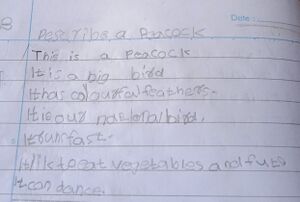 Date:
Describe a Peacock
This is a Peacock
It is a big bird
It has colourful feathers.
It is our national bird.
It run fast.
It lik to eat vegetables and futs
It can dance.